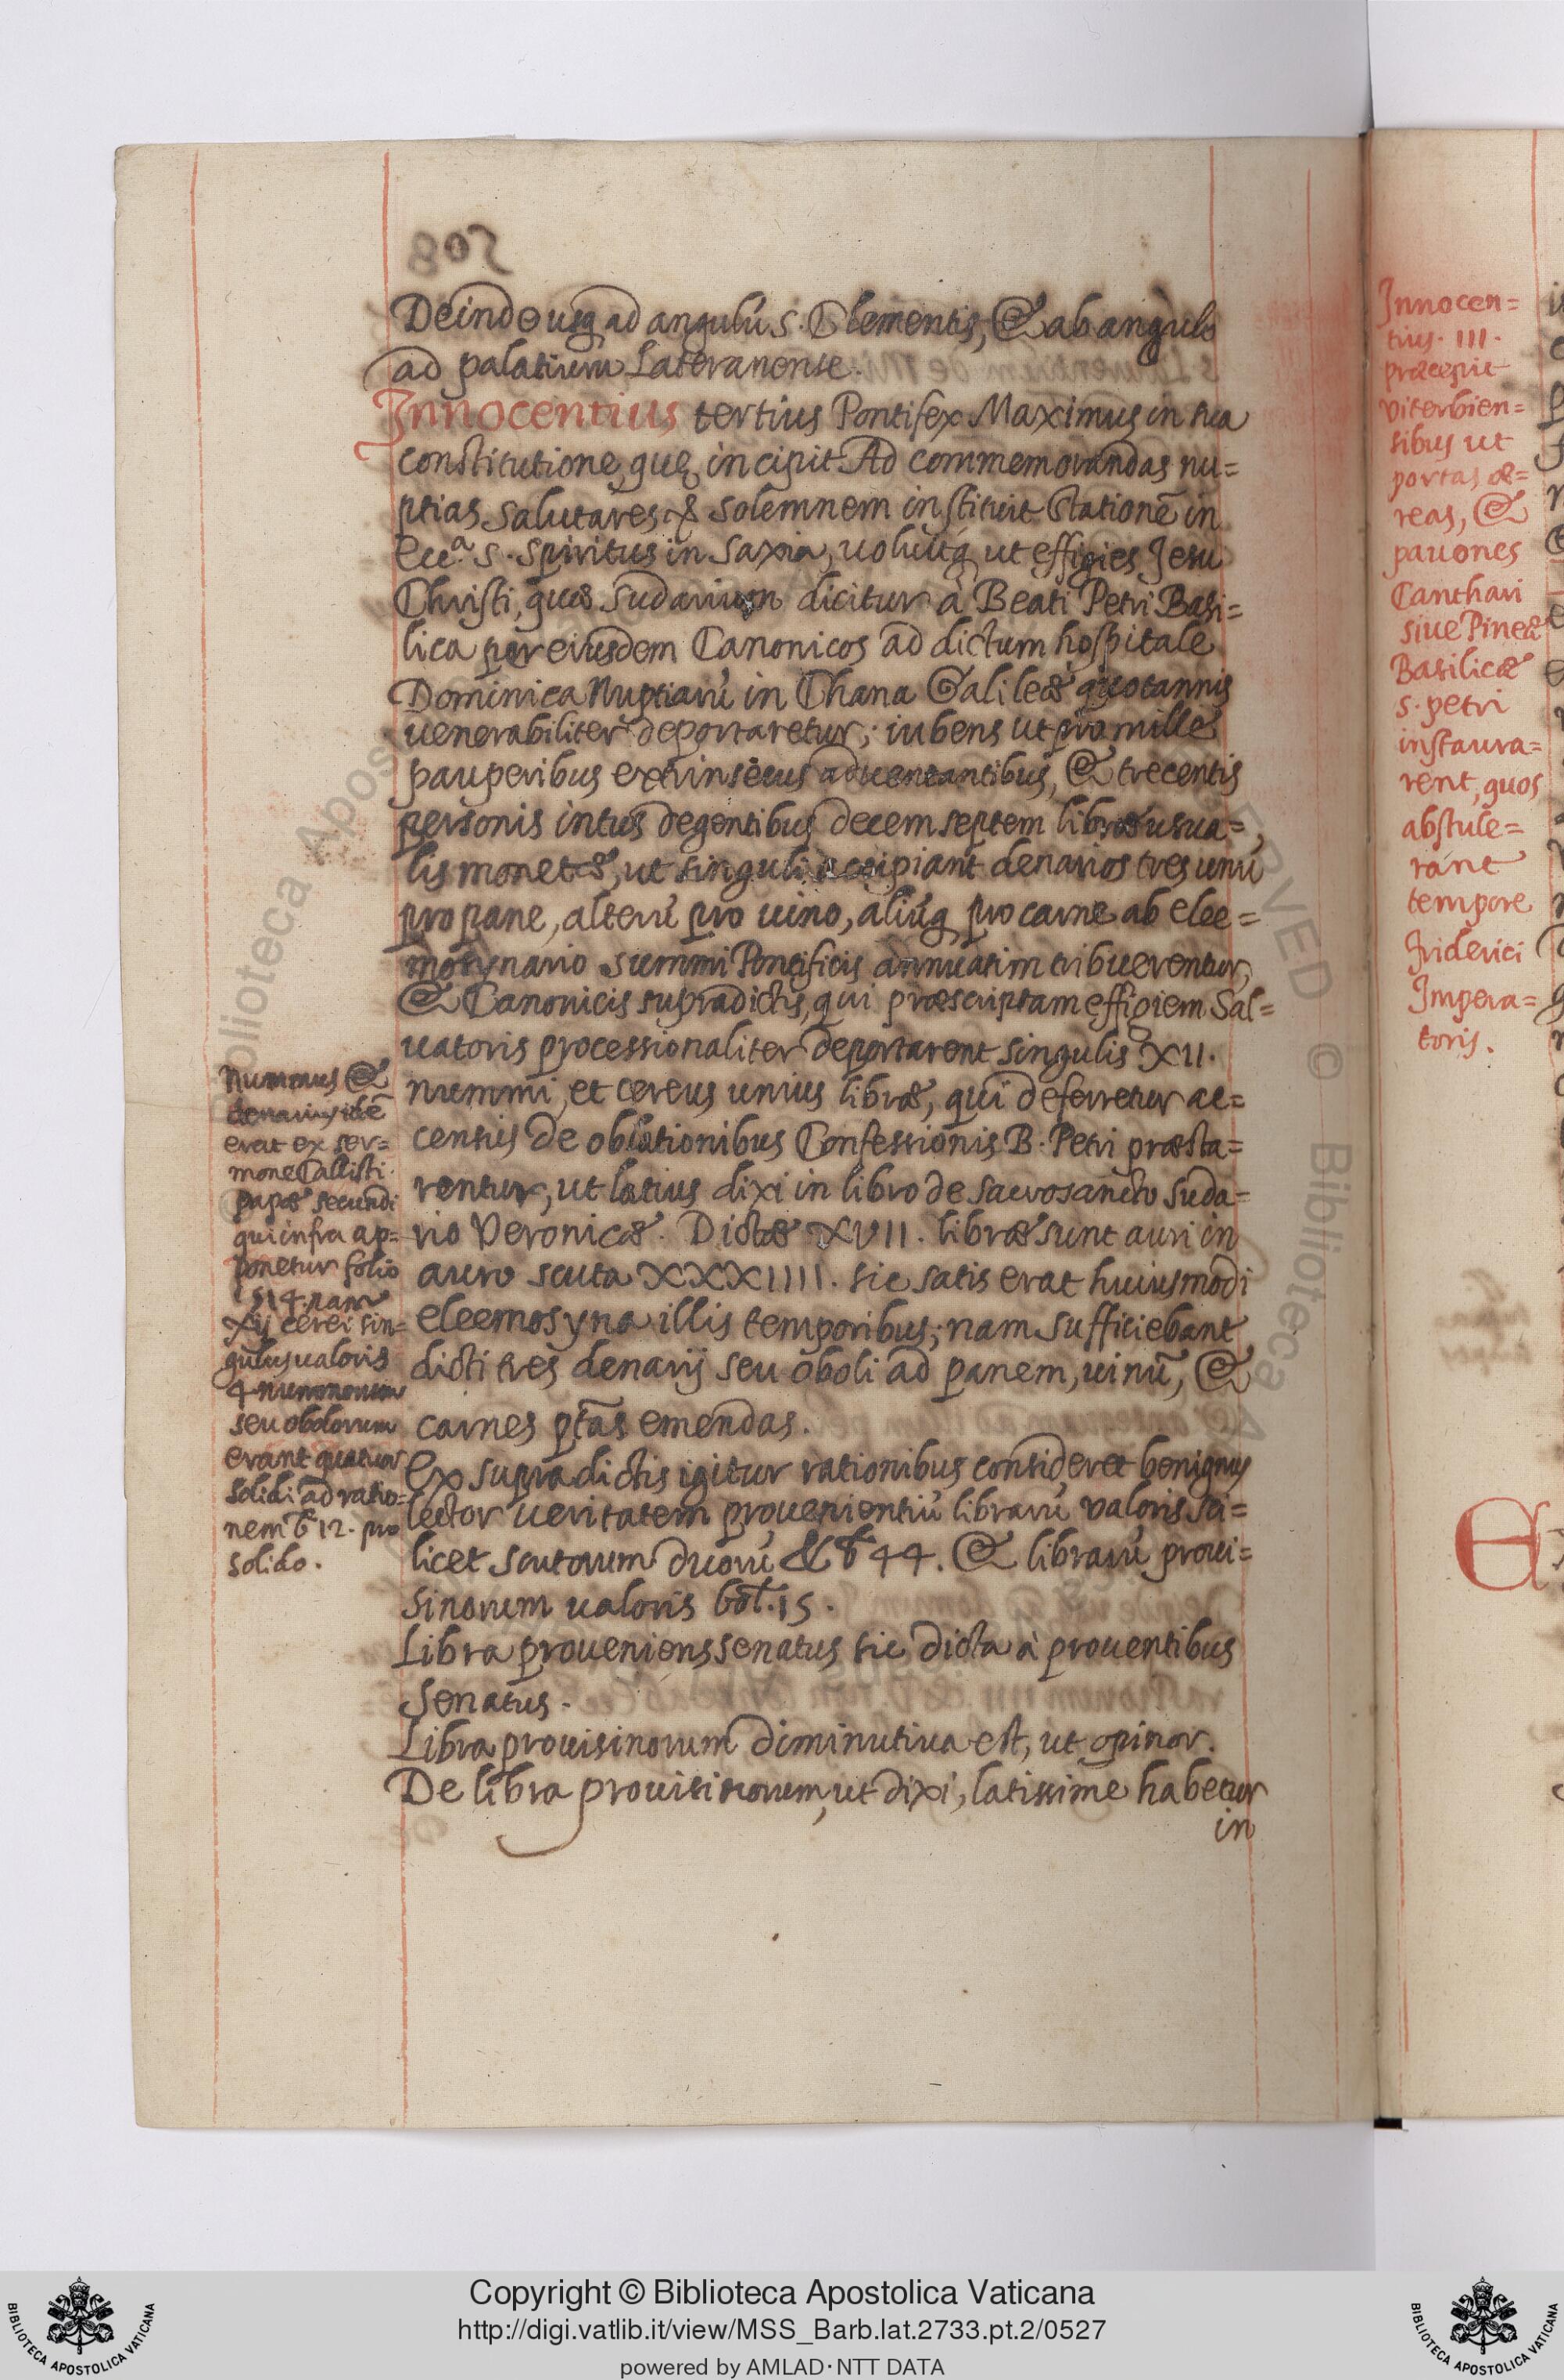 Deinde usq₃ ad angulú s. Clementis, & ab angulo
ad palatium Lateranense.
Innocentius tertius Pontifex Maximus in sua
constitutione, quę incipit Ad commemorandas nu=
ptias salutares & solemnem instituit stationē in
Ecc.ª s. Spiritus in saxia, uoluitq₃ ut effigies Jesu
Christi, quæ sudarium dicitur à Beati Petri Basi=
lica per eiusdem Canonicos ad dictum hospitale
Dominica Nuptiarú in Chana Galileæ quotannis
uenerabiliter deportaretur; iubens ut pro mille
pauperibus extrinsecus aduentantibus, & trecentis
personis intus degentibus decem septem libræ usua=
lis monetæ, ut singuli accipiant denarios tres unú
pro pane, alterú pro uino, aliúq₃ pro carne ab elee=
mosynario summi Pontificis annuatim tribuerentur,
& Canonicis supradictis, qui præscriptam effigiem Sal=
uatoris processionaliter deportarent singulis XII.
nummi, et cereus unius libræ, qui deferretur ac=
census de oblationibus Confessionis B. Petri præsta=
rentur, ut latius dixi in libro de sacrosancto suda=
rio Veronicæ. Dictæ XVII. libræ sunt auri in
auro scuta XXXIIII. sic satis erat huiusmodi
eleemosyna illis temporibus; nam sufficiebant
dicti tres denarij seu oboli ad panem, uinū, &
carnes p̄tas emendas.
Ex supradictis igitur rationibus consideret benignus
lector ueritatem prouenientiú librarú valoris sci=
licet scutorum duorú & b 44. & librarú proui=
sinorum ualoris bol. 15.
Libra proueniens senatus sic dicta à prouentibus
Senatus.
Libra prouisinorum diminutiua est, ut opinor.
De libra prouisinorum, ut dixi, latissime habetur
in
Nummus &
denarius idē
erat ex ser=
mone Callisti
papæ secundi
qui infra ap=
ponetur folio
514. nam
xij cerei sin=
gulus ualoris
4 nummorum
seu obolorum
erant quatuor
solidi ad ratio=
nem b 12. pro
solido.
Innocen=
tius. III.
præcepit
viterbien=
sibus ut
portas æ=
reas, &
pauones
Canthari
siue Pineæ
Basilicæ
s. petri
instaura=
rent, quos
abstule=
rant
tempore
Friderici
Impera=
toris.
Copyright © Biblioteca Apostolica Vaticana
http://digi.vatlib.it/view/MSS_Barb.lat.2733.pt.2/0527
powered by AMLAD·NTT DATA
BIBLIOTECA APOSTOLICA VATICANA
BIBLIOTECA APOSTOLICA VATICANA